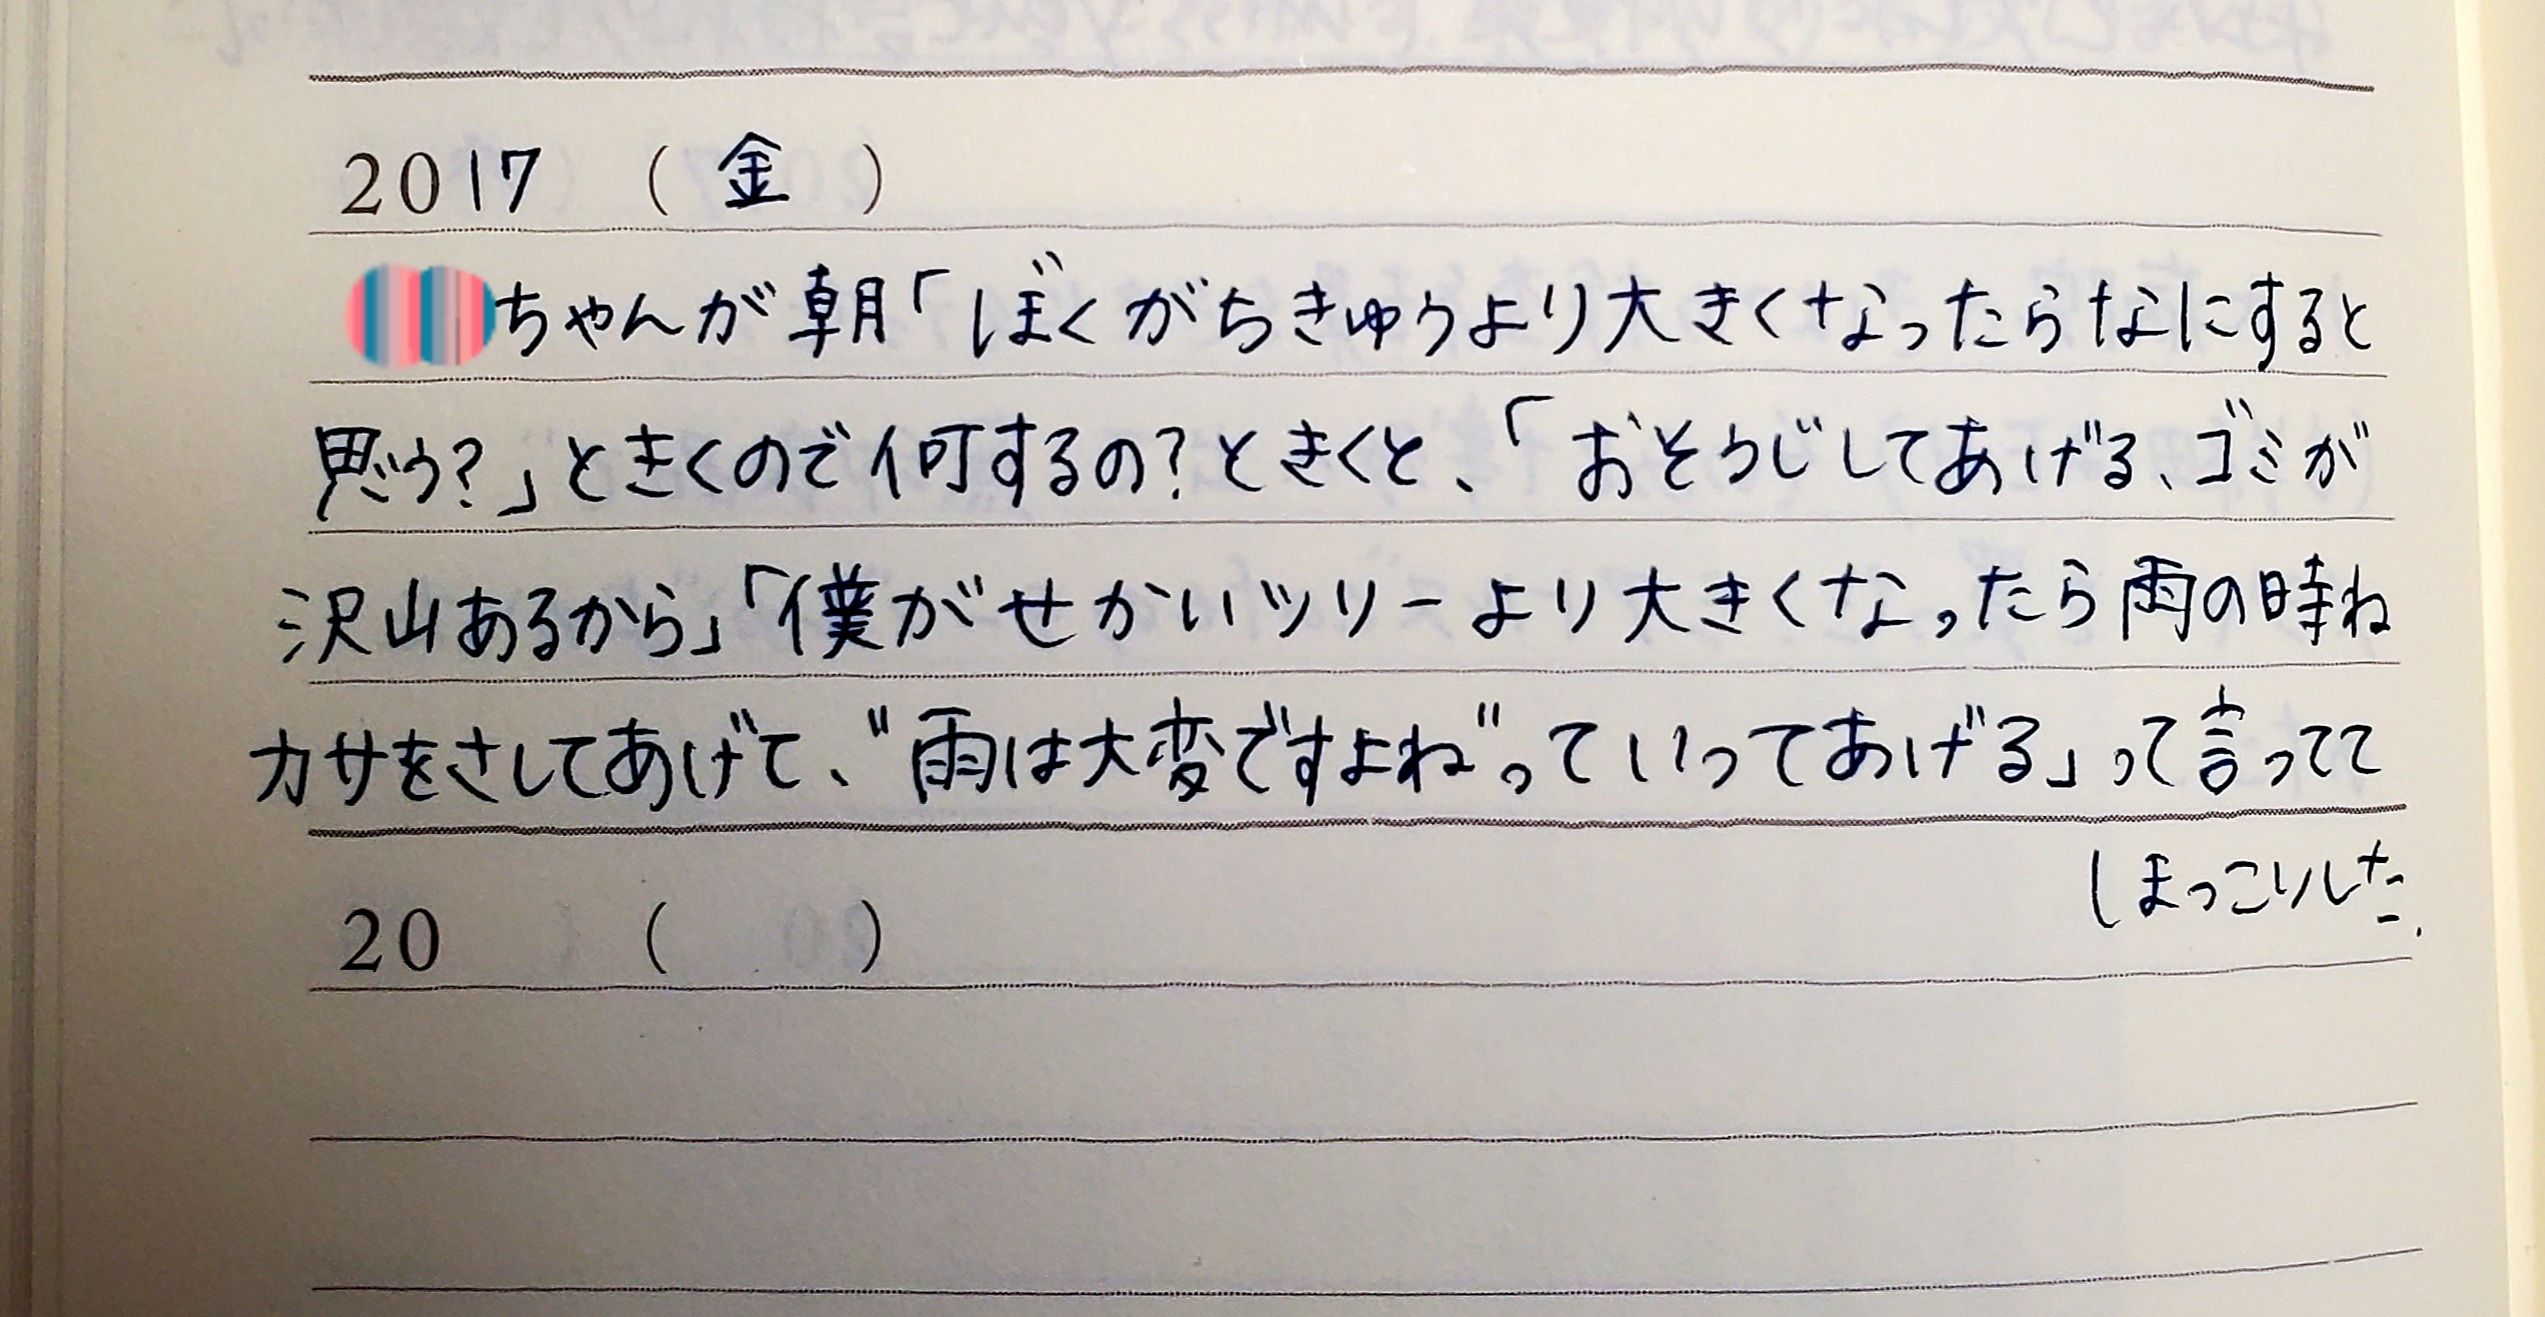 2017 (金)
ちゃんが朝「ぼくがちきゅうより大きくなったらなにすると
思う?」ときくので何するの?ときくと、「おそうじしてあげる、ゴミが
沢山あるから」「僕がせかいツリーより大きくなったら雨の時ね
カサをさしてあげて、"雨は大変ですよね"っていってあげる」って言ってて
ほっこりした.
20 ( )